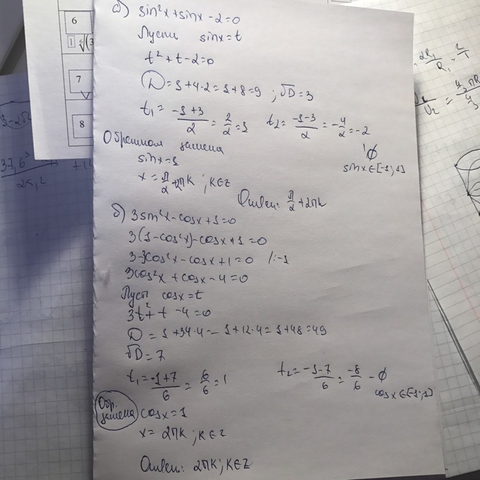 а) sin²x + sinx - 2 = 0
Пусть sinx = t
t² + t - 2 = 0
D = 1 + 4·2 = 1 + 8 = 9 ; √D = 3
t₁ = (-1+3)/2 = 2/2 = 1   t₂ = (-1-3)/2 = -4/2 = -2
∅
sin x ∈ [-1; 1]
Обратная замена
sinx = 1
x = π/2 + 2πk ; k∈Z
Ответ: π/2 + 2πk
б) 3sin²x - cosx + 1 = 0
3(1 - cos²x) - cosx + 1 = 0
3 - 3cos²x - cosx + 1 = 0 /:-1
3cos²x + cosx - 4 = 0
Пусть cosx = t
3t² + t - 4 = 0
D = 1 + 34·4 = 1 + 12·4 = 1 + 48 = 49
√D = 7
t₁ = (-1+7)/6 = 6/6 = 1   t₂ = (-1-7)/6 = -8/6 - ∅
cos x ∈ [-1; 1]
Обр. замена
cosx = 1
x = 2πk ; k∈Z
Ответ: 2πk ; k∈Z
6
7
8